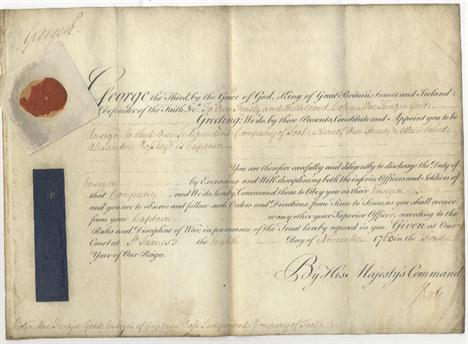 George R
George the Third, by the Grace of God, King of Great Britain, France and Ireland,
Defender of the Faith &c. To Our Trusty and Welbeloved Colin Mac Kenzie Gent.
Greeting: We do, by these Presents, Constitute and Appoint you to be
Ensign to that Our Independent Company of Foot, whereof Our Trusty & Welbeloved
is Captain.
You are therefore carefully and diligently to discharge the Duty of
Ensign by Exercising and Well disciplining both the inferior Officers and Soldiers of
that Company and We do hereby Command them to Obey you as their Ensign
and you are to observe and follow such Orders and Directions, from Time to Time, as you shall receive
from your Captain or any other your Superior Officer, according to the
Rules and Discipline of War, in pursuance of the Trust hereby reposed in you. Given at Our
Court at St. James's the Eighth Day of November 1760 in the First
Year of Our Reign.
By His Majesty's Command
Colin Mac Kenzie Gent. Ensign of Captain Independent Company of Foot